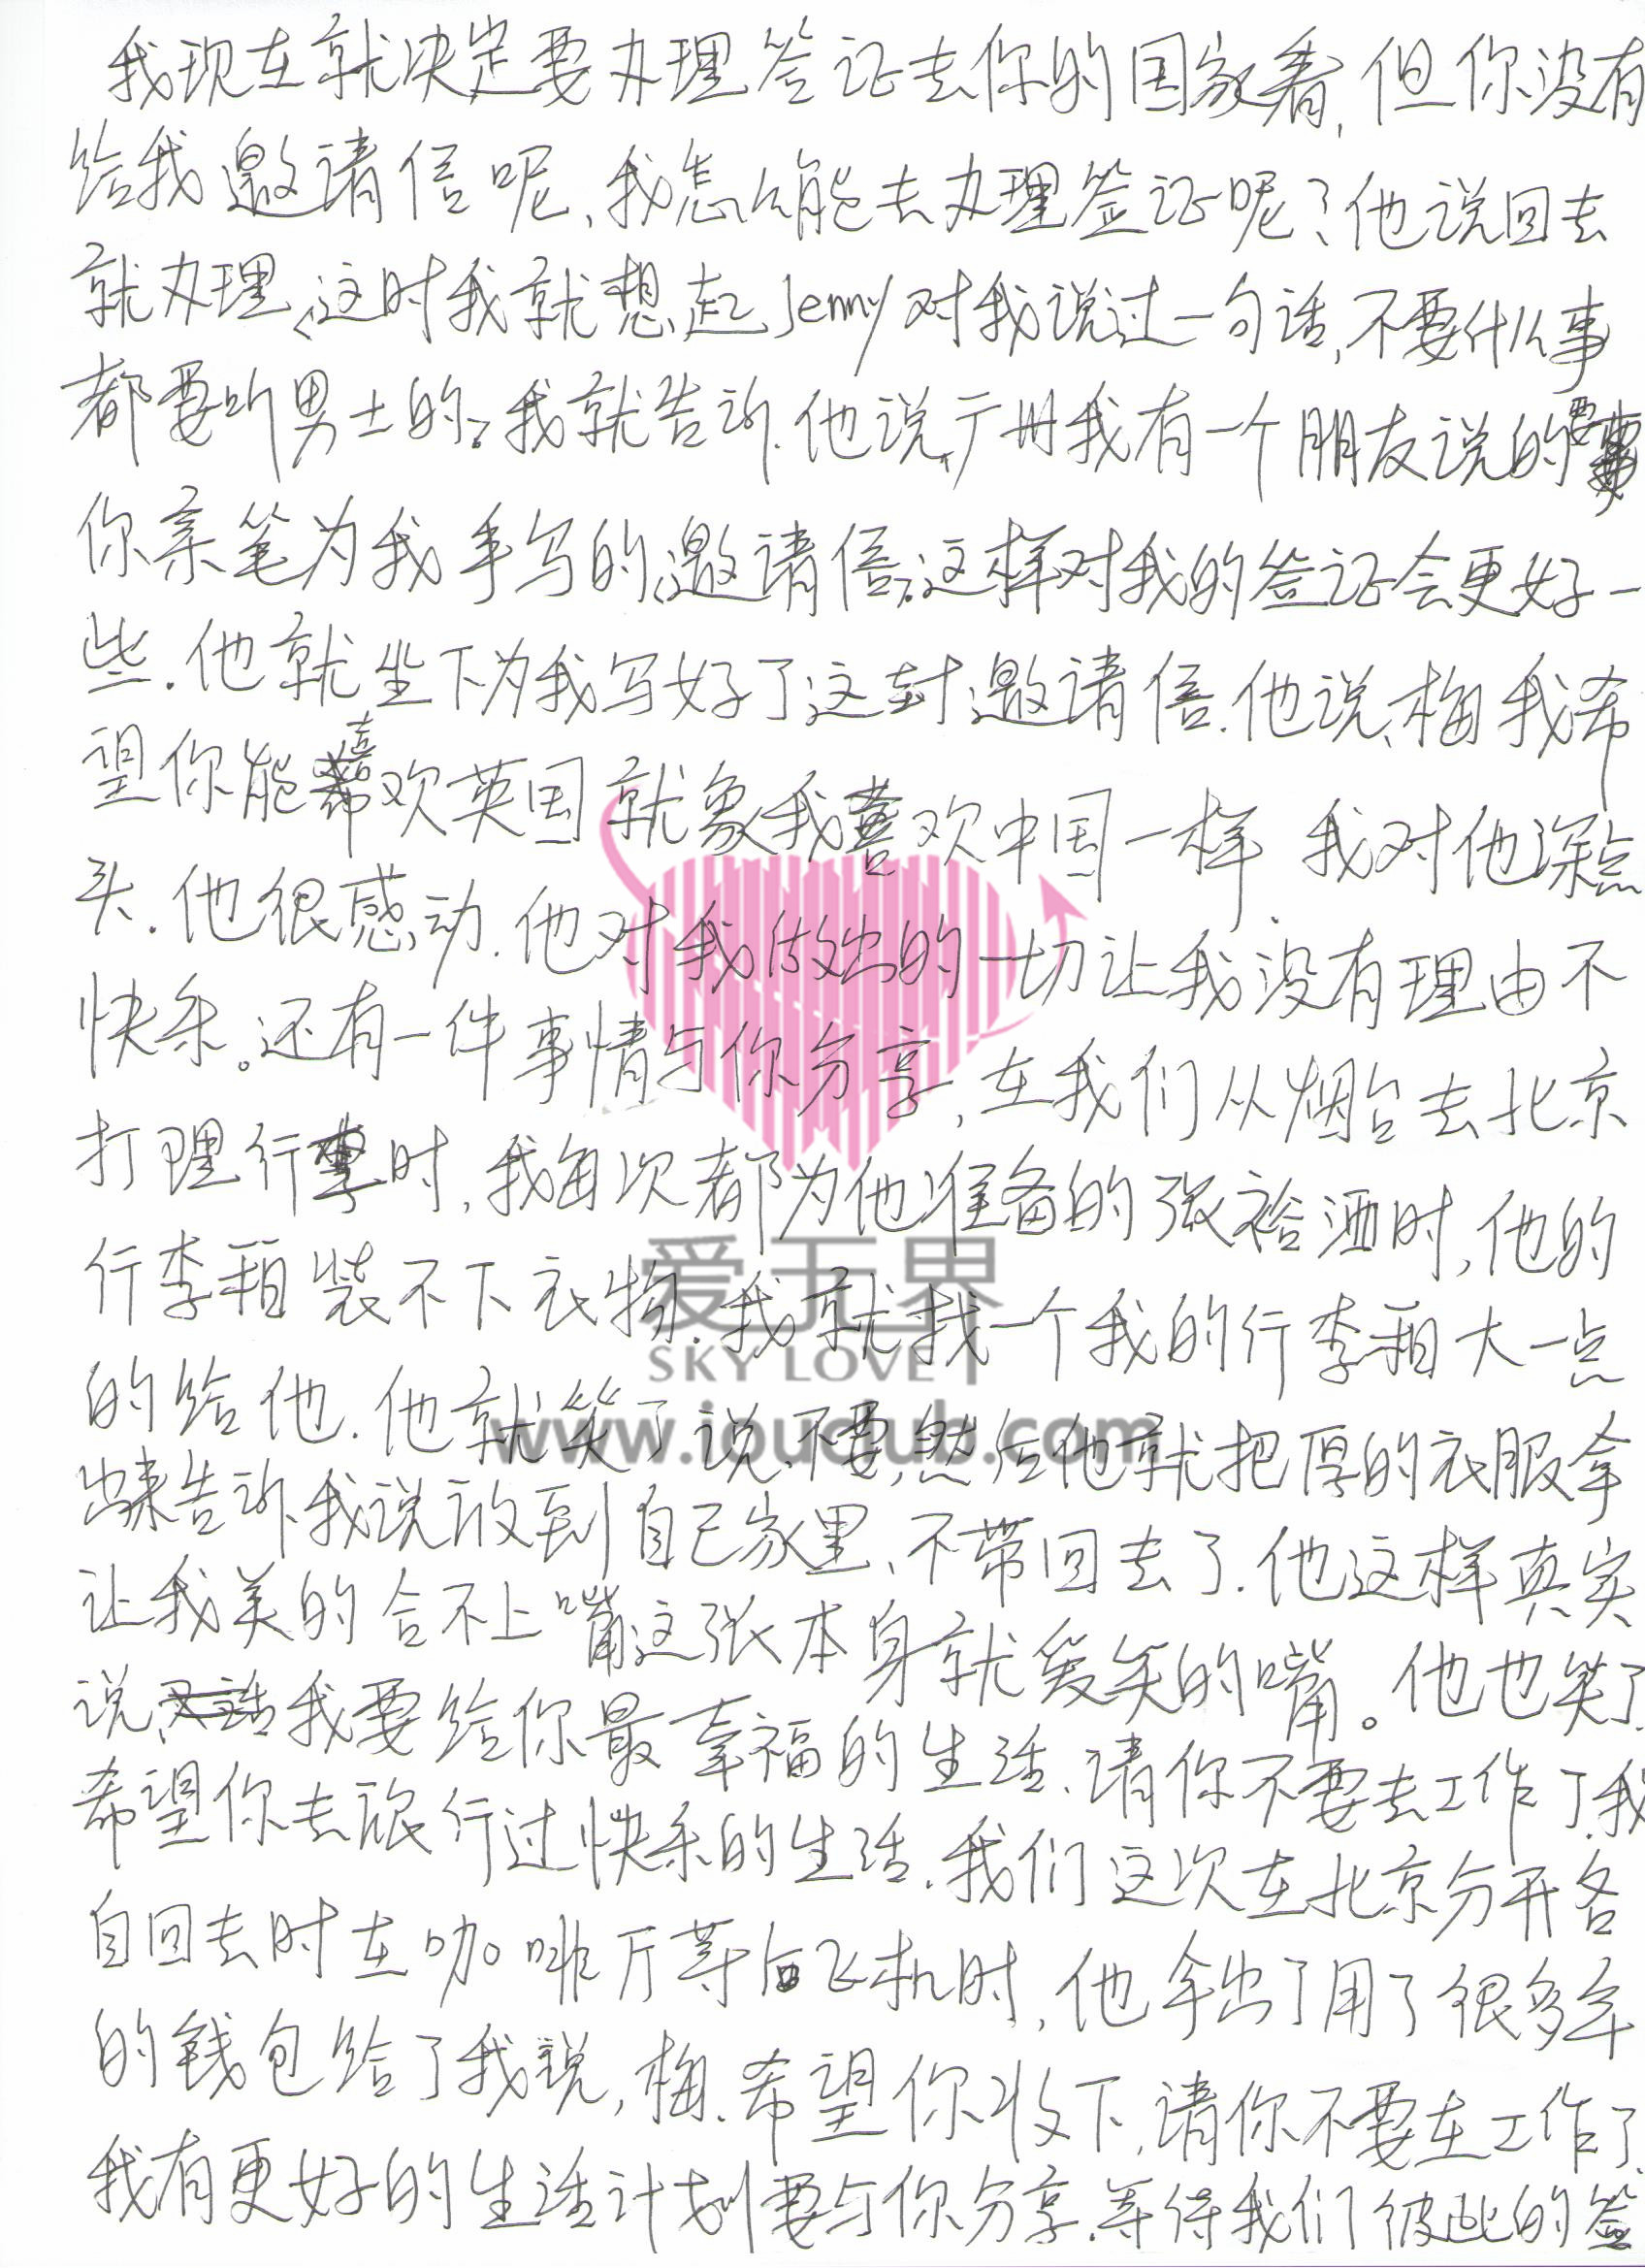 我现在就决定要办理签证去你的国家看,但你没有
给我邀请信呢、我怎么能去办理签证呢?他说回去
就办理、这时我就想起Jenny对我说过一句话,不要什么事
都要听男士的。我就告诉.他说,广州我有一个朋友说的要
你亲笔为我手写的邀请信.这样对我的签证会更好一
些.他就坐下为我写好了这封邀请信.他说、梅我希
望你能喜欢英国就象我喜欢中国一样.我对他深点
头.他很感动.他对我做出的一切让我没有理由不
快乐。还有一件事情与你分享,在我们从烟台去北京
打理行李时,我每次都为他准备的张裕酒时,他的
行李箱装不下衣物.我就找一个我的行李箱大一点
的给他.他就笑了说、不要,然后他就把厚的衣服拿
出来告诉我说放到自己家里、不带回去了.他这样真实
让我美的合不上嘴这张本身就爱笑的嘴。他也笑了.
说、我要给你最幸福的生活.请你不要去工作了.我
希望你去旅行过快乐的生活.我们这次在北京分开各
自回去时在咖啡厅等飞机时,他拿出了用了很多年
的钱包给了我说,梅.希望你收下,请你不要在工作了.
我有更好的生活计划要与你分享.等待我们彼此的签
爱无界
SKY LOVE
www.iouclub.com